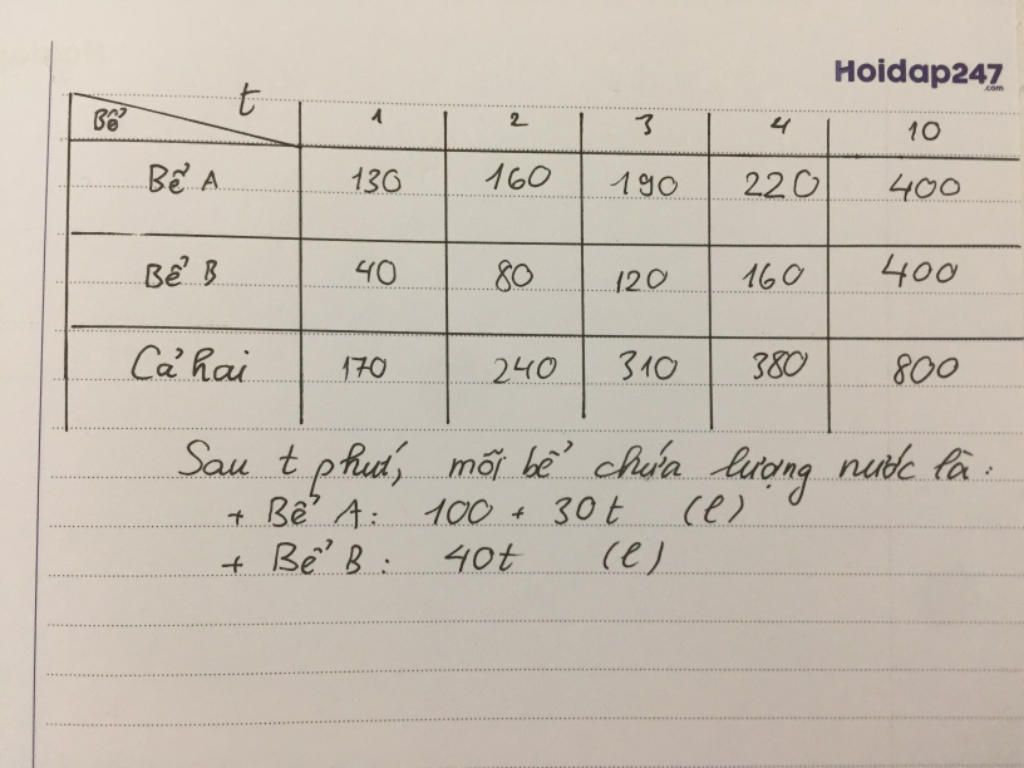 Hoidap247
.com
t
Bể 1 2 3 4 10
Bể A 130 160 190 220 400
Bể B 40 80 120 160 400
Cả hai 170 240 310 380 800
Sau t phút, mỗi bể chứa lượng nước là:
+ Bể A: 100 + 30t (l)
+ Bể B: 40t (l)